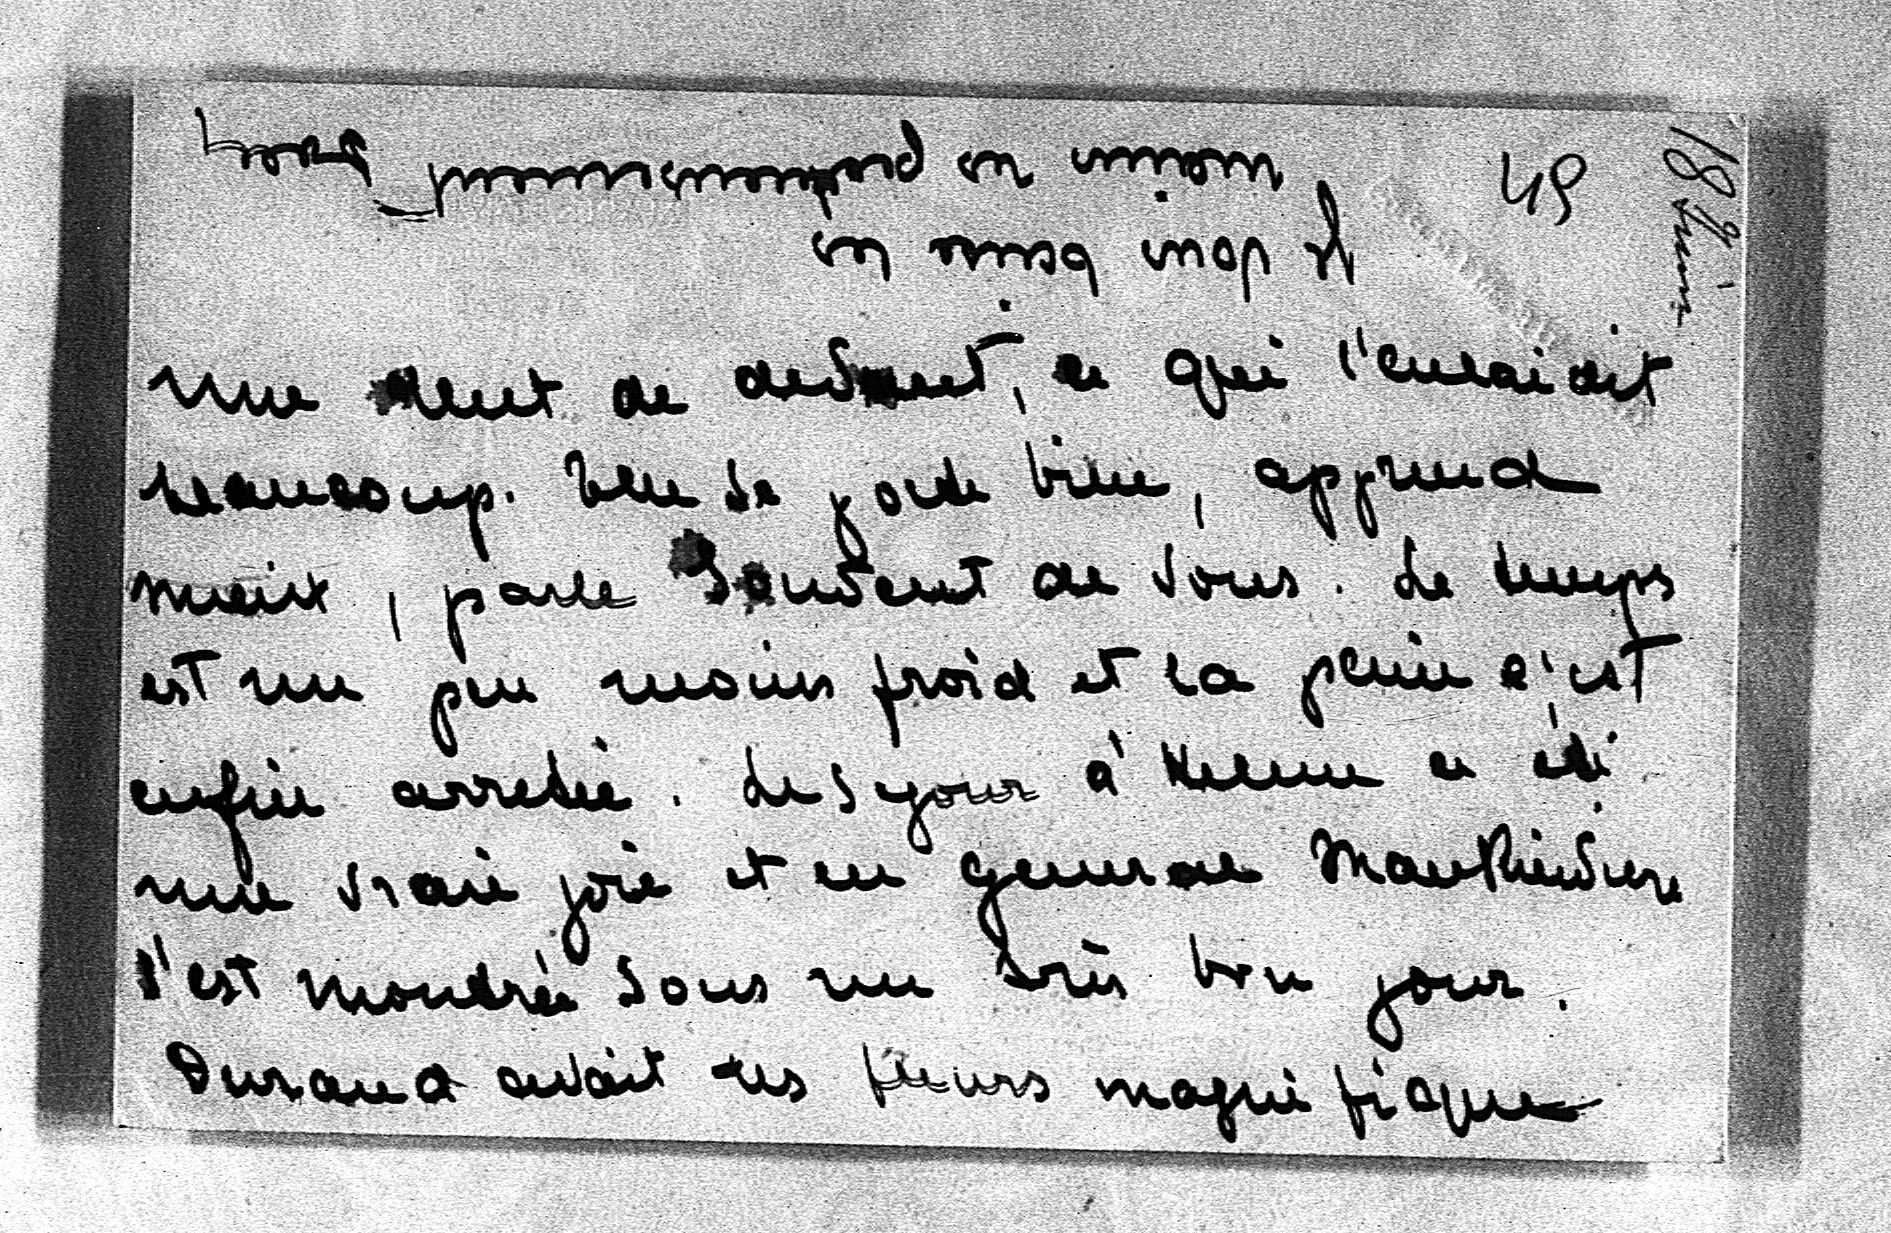 49
18 Juin
une dent de devant, ce qui l'enlaidit
beaucoup. Elle se porte bien, apprend
mieux, parle souvent de vous. Le temps
est un peu moins froid et la pluie s'est
enfin arretée. Le sejour à a été
une vraie joie et en general
s'est montrée sous un très bon jour.
Durand avait des fleurs magnifiques
Je vous baise les
mains